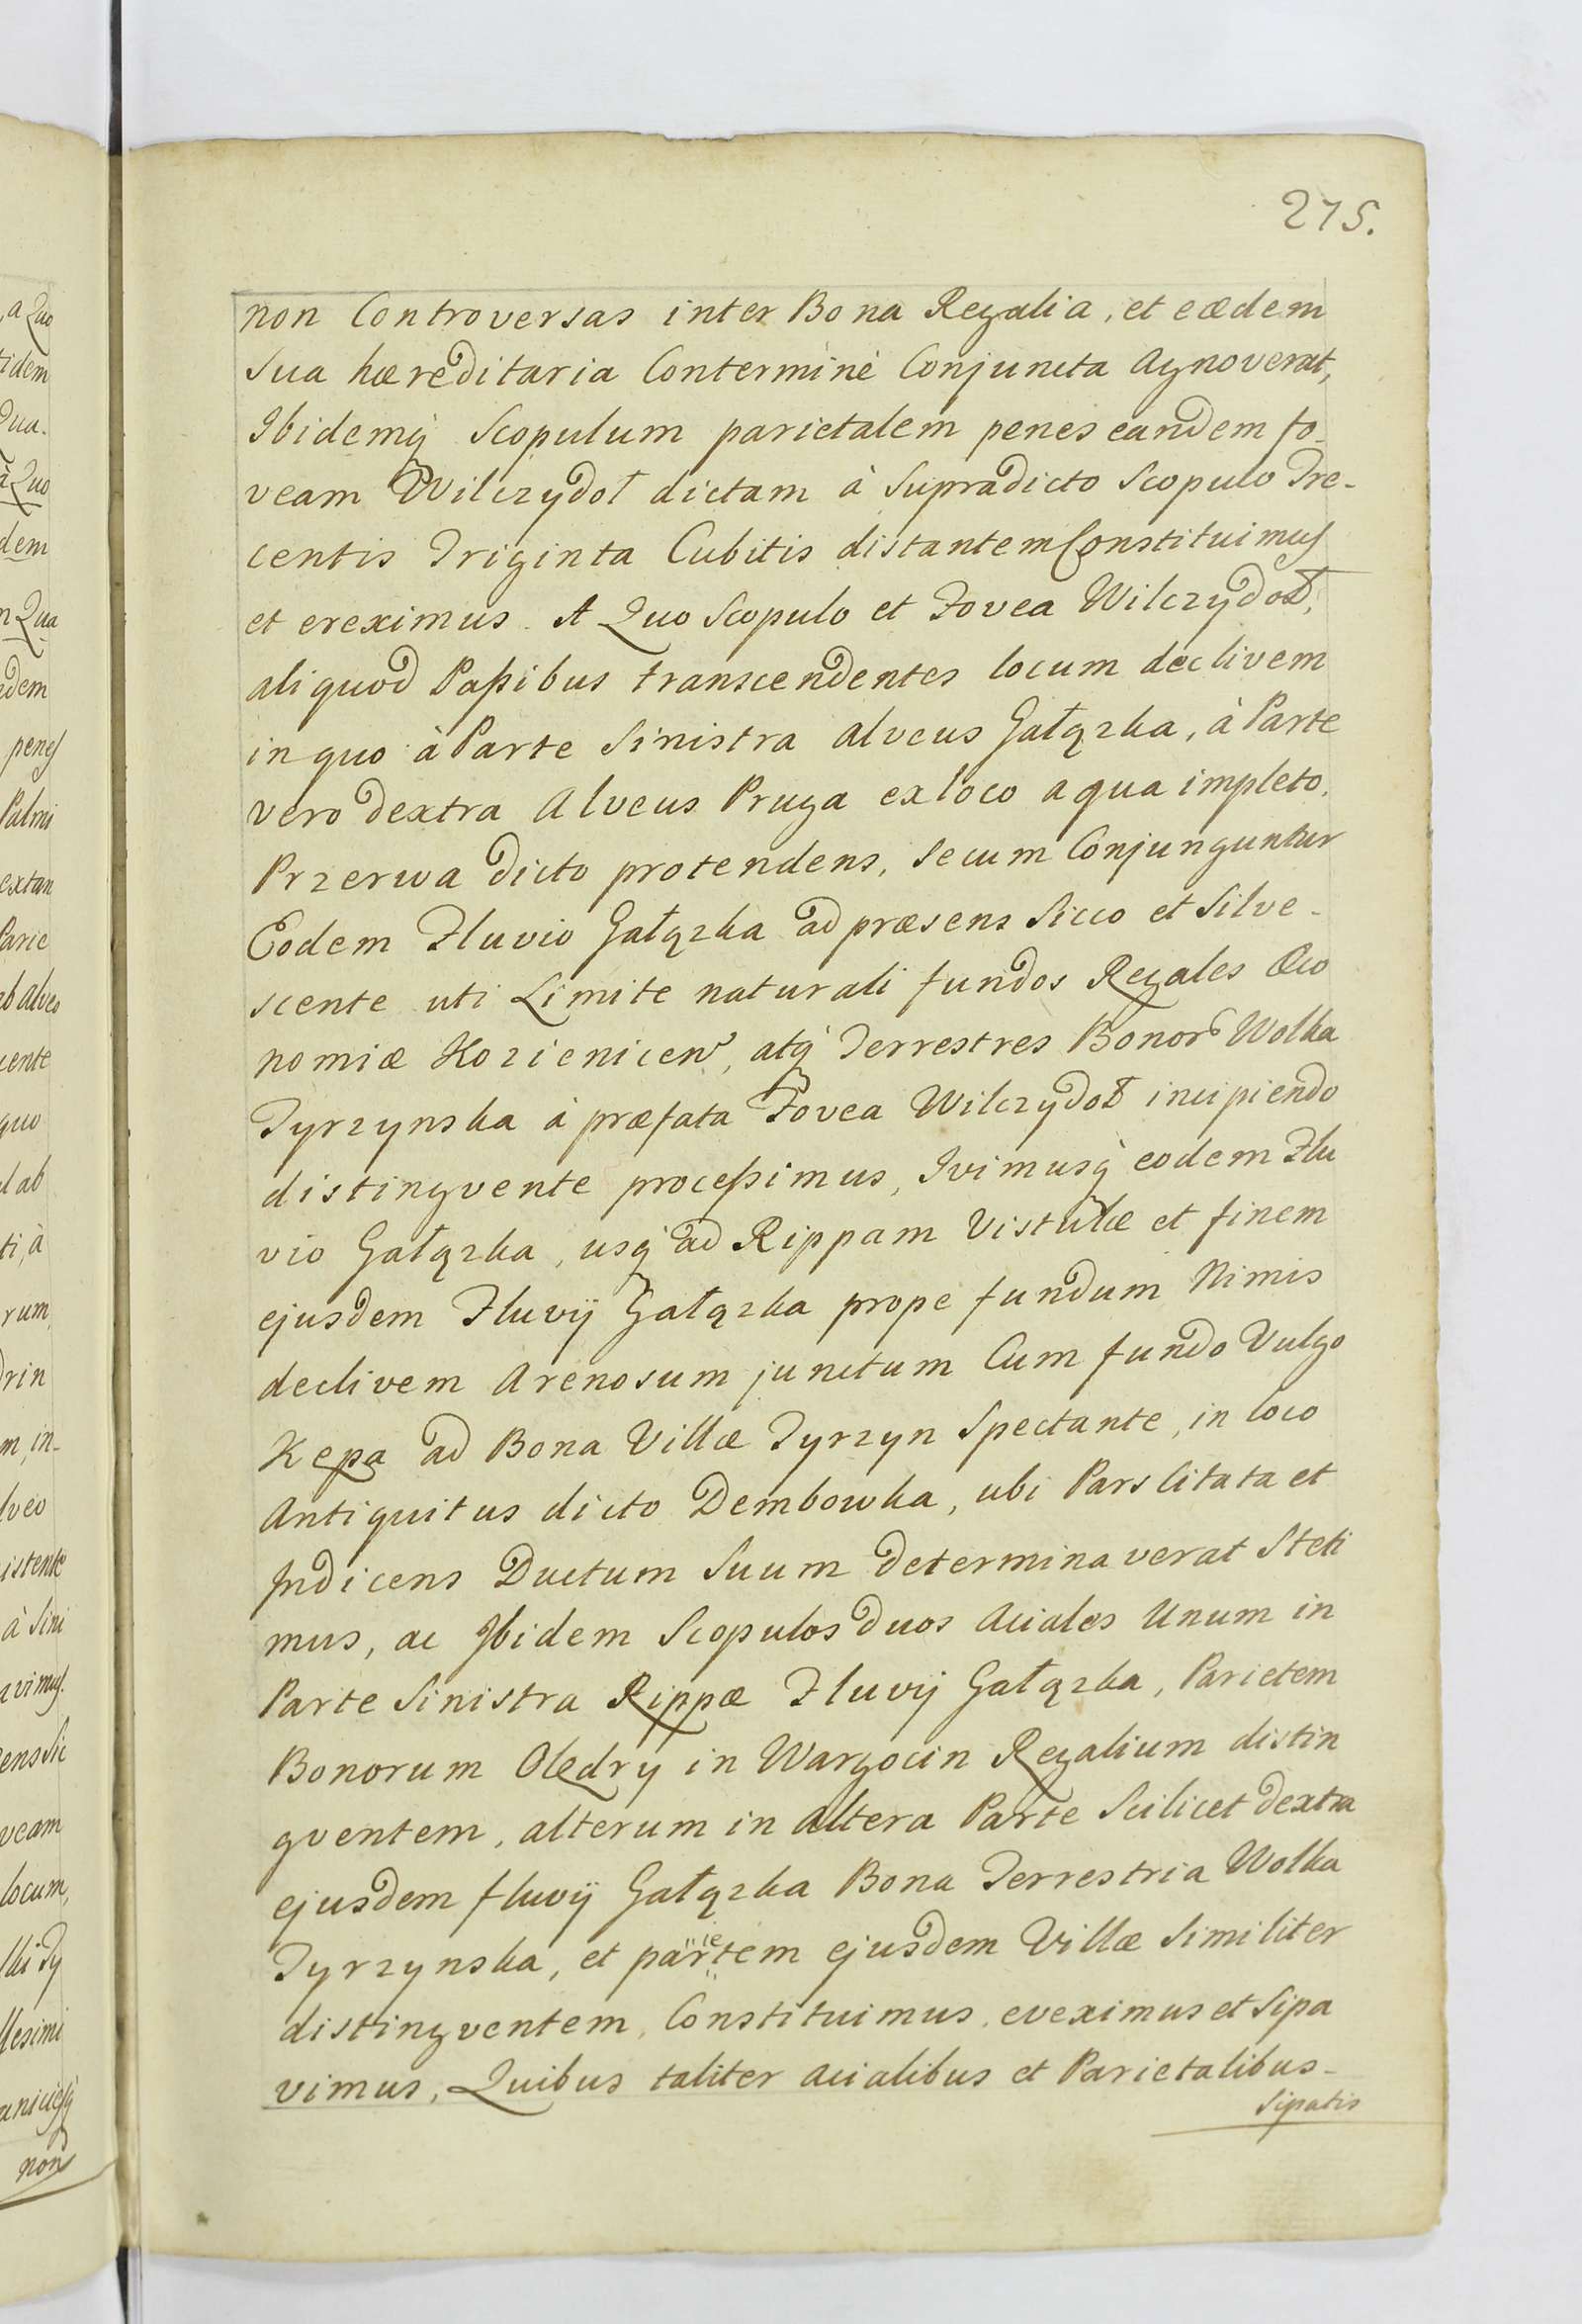 275.
non Controversas inter Bona Regalia, et eædem
Sua hæreditaria Contermine Conjuncta Agnoverat,
Ibidemq̀ Scopulum parietalem penes eandem fo-
veam Wilczydoł dictam à Supradicto Scopulo Tre-
centis Triginta Cubitis distantem Constituimus
et ereximus. A Quo Scopulo et Fovea Wilczydoł,
aliquod Passibus transcendentes locum declivem
in quo à Parte Sinistra alveus Gałązka, à Parte
vero dextra Alveus Pruga ex loco aqua impleto,
Przerwa dicto protendens, Secum Conjunguntur
Eodem Fluvio Gałązka ad præsens Sicco et Silve-
scente uti Limite naturali fundos Regales Œco
nomiæ Kozienicen, atq̀ Terrestres Bonor Wolka
Tyrzynska à præfata Fovea Wilczydoł incipiendo
distingvente processimus, Ivimusq̀ eodem Flu
vio Gałązka, usq̀ ad Rippam Vistulæ et finem
ejusdem Fluvij Gałązka prope fundum Nimis
declivem Arenosum junctum Cum fundo Vulgo
Kępa ad Bona Villæ Tyrzyn Spectante, in loco
Antiquitus dicto Dembowka, ubi Pars Citata et
Indicens Ductum Suum determinaverat Steti
mus, ac Ibidem Scopulos duos Aciales Unum in
Parte Sinistra Rippæ Fluvij Gałązka, Parietem
Bonorum Olędry in Wargocin Regalium distin
gventem, alterum in altera Parte Scilicet dextra
ejusdem fluvij Gałązka Bona Terrestria Wolka
Tyrzynska, et parietem ejusdem Villæ Similiter
distingventem, Constituimus, eveximus et Sipa
vimus, Quibus taliter acialibus et Parietalibus-
Sipatis